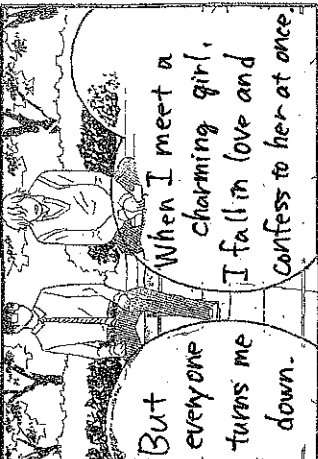 When I meet a
charming girl,
I fall in love and
confess to her at once.
But
everyone
turns me
down.